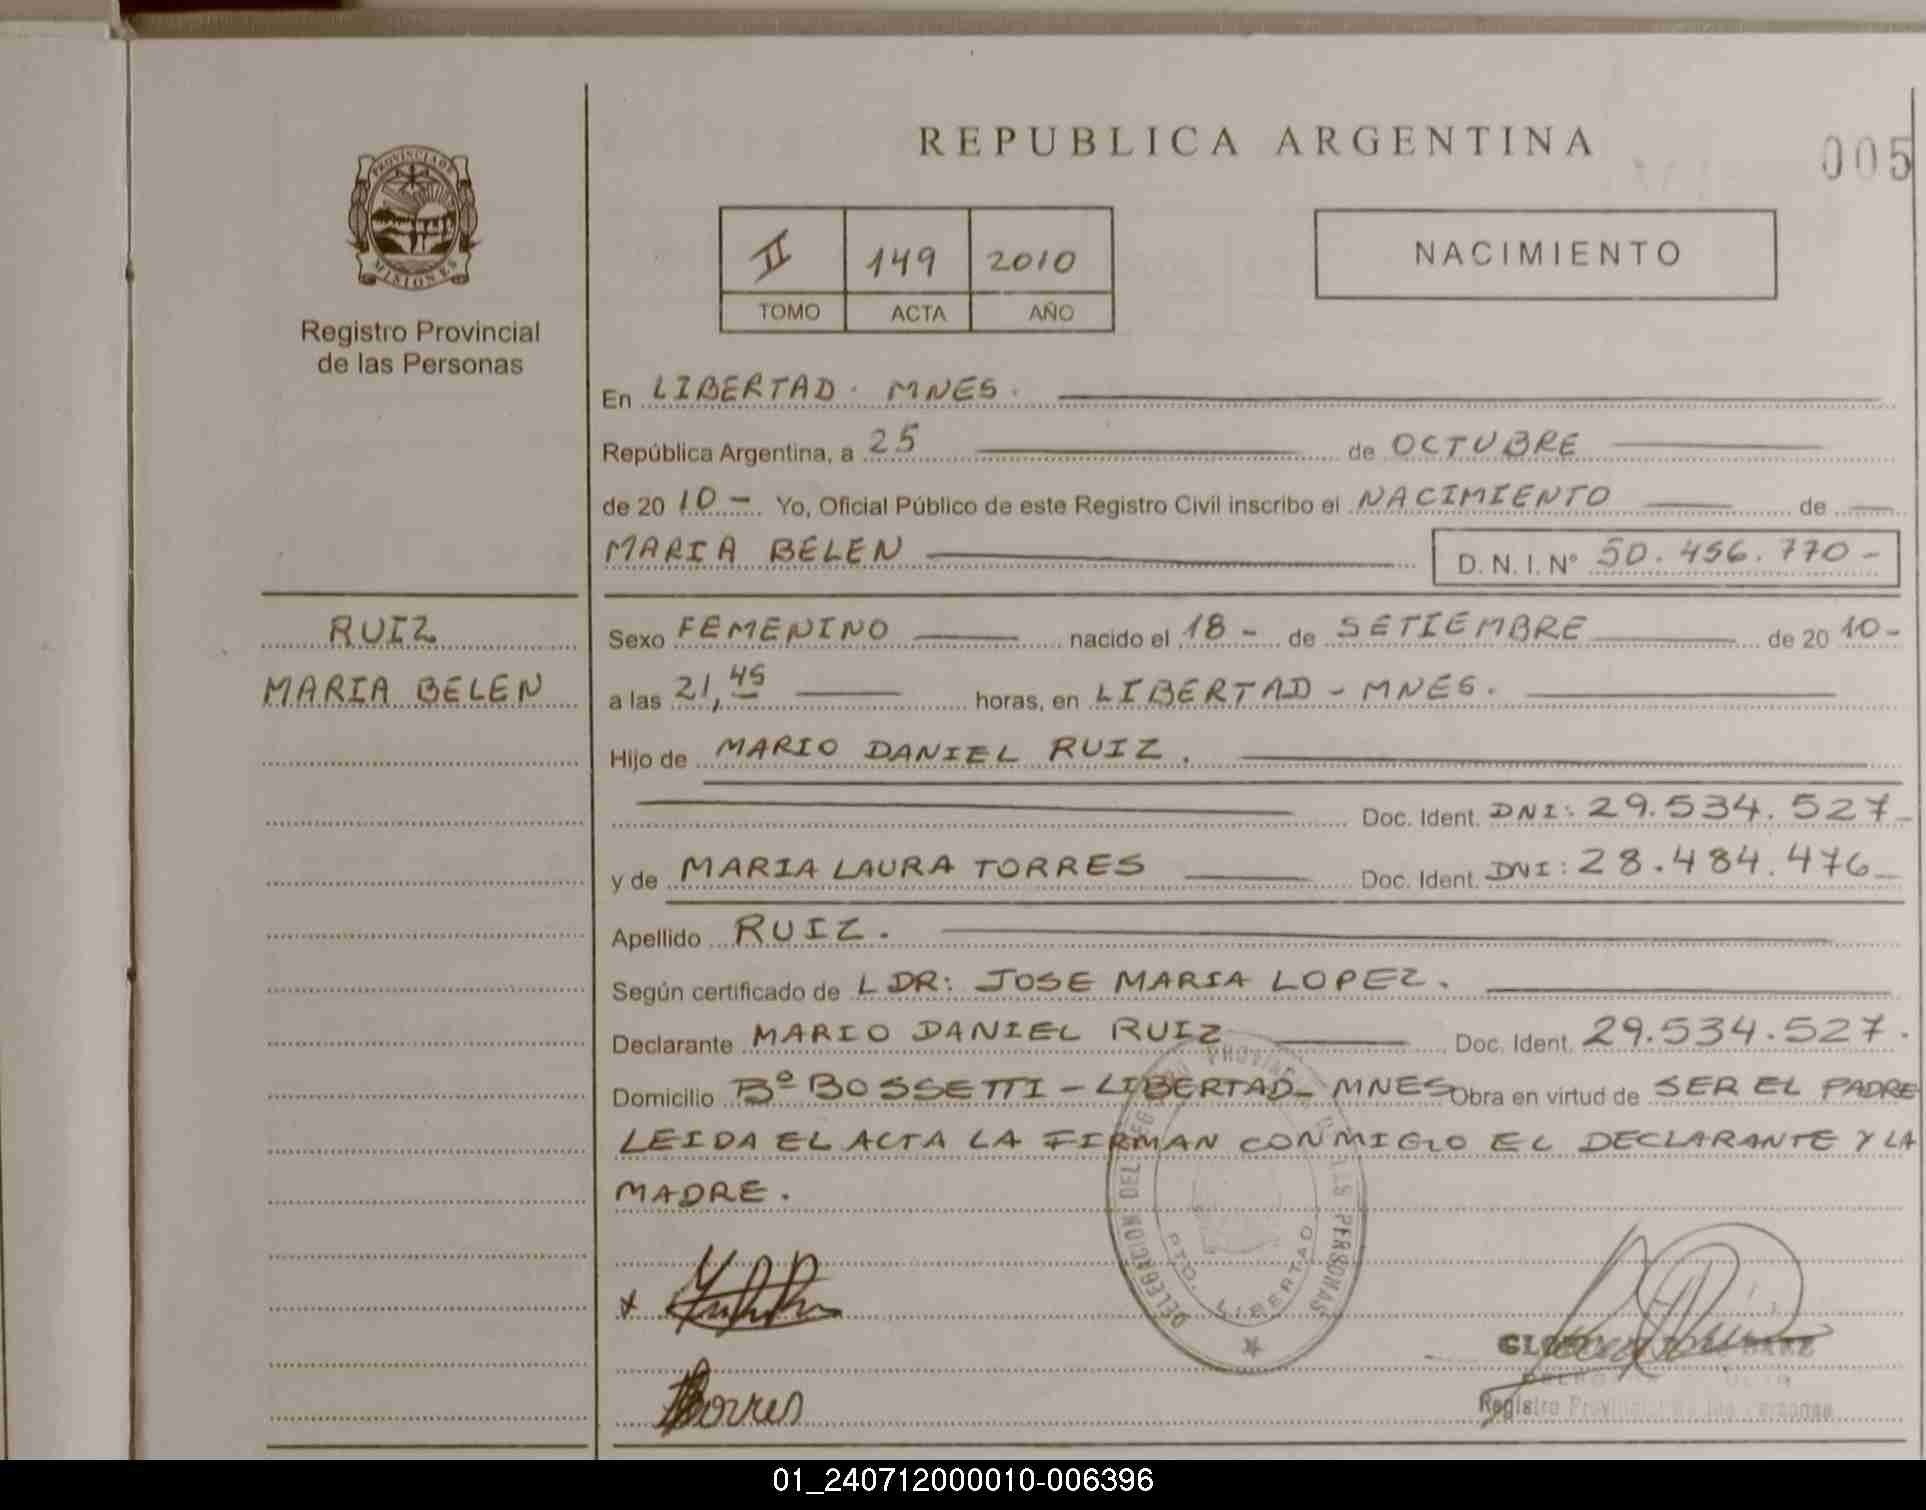 REPUBLICA ARGENTINA
005
PROVINCIA DE
MISIONES
Registro Provincial
de las Personas
II 149 2010
TOMO ACTA AÑO
NACIMIENTO
En LIBERTAD. MNES.
República Argentina, a 25 de OCTUBRE
de 20 10 - Yo, Oficial Público de este Registro Civil inscribo el NACIMIENTO de
MARIA BELEN D. N. I. N° 50.456.770 -
RUIZ
MARIA BELEN
Sexo FEMENINO nacido el 18 - de SETIEMBRE de 20 10 -
a las 21,45 horas, en LIBERTAD - MNES.
Hijo de MARIO DANIEL RUIZ.
Doc. Ident. DNI: 29.534.527 -
y de MARIA LAURA TORRES Doc. Ident. DNI: 28.484.476 -
Apellido RUIZ.
Según certificado de L DR: JOSE MARIA LOPEZ.
Declarante MARIO DANIEL RUIZ Doc. Ident. 29.534.527.
Domicilio Bº BOSSETTI - LIBERTAD - MNES Obra en virtud de SER EL PADRE
LEIDA EL ACTA LA FIRMAN CONMIGO EL DECLARANTE Y LA
MADRE.
DELEGACION DEL REGISTRO PROVINCIAL DE LAS PERSONAS
PTO. LIBERTAD
Torres
Registro Provincial de las Personas
01_240712000010-006396